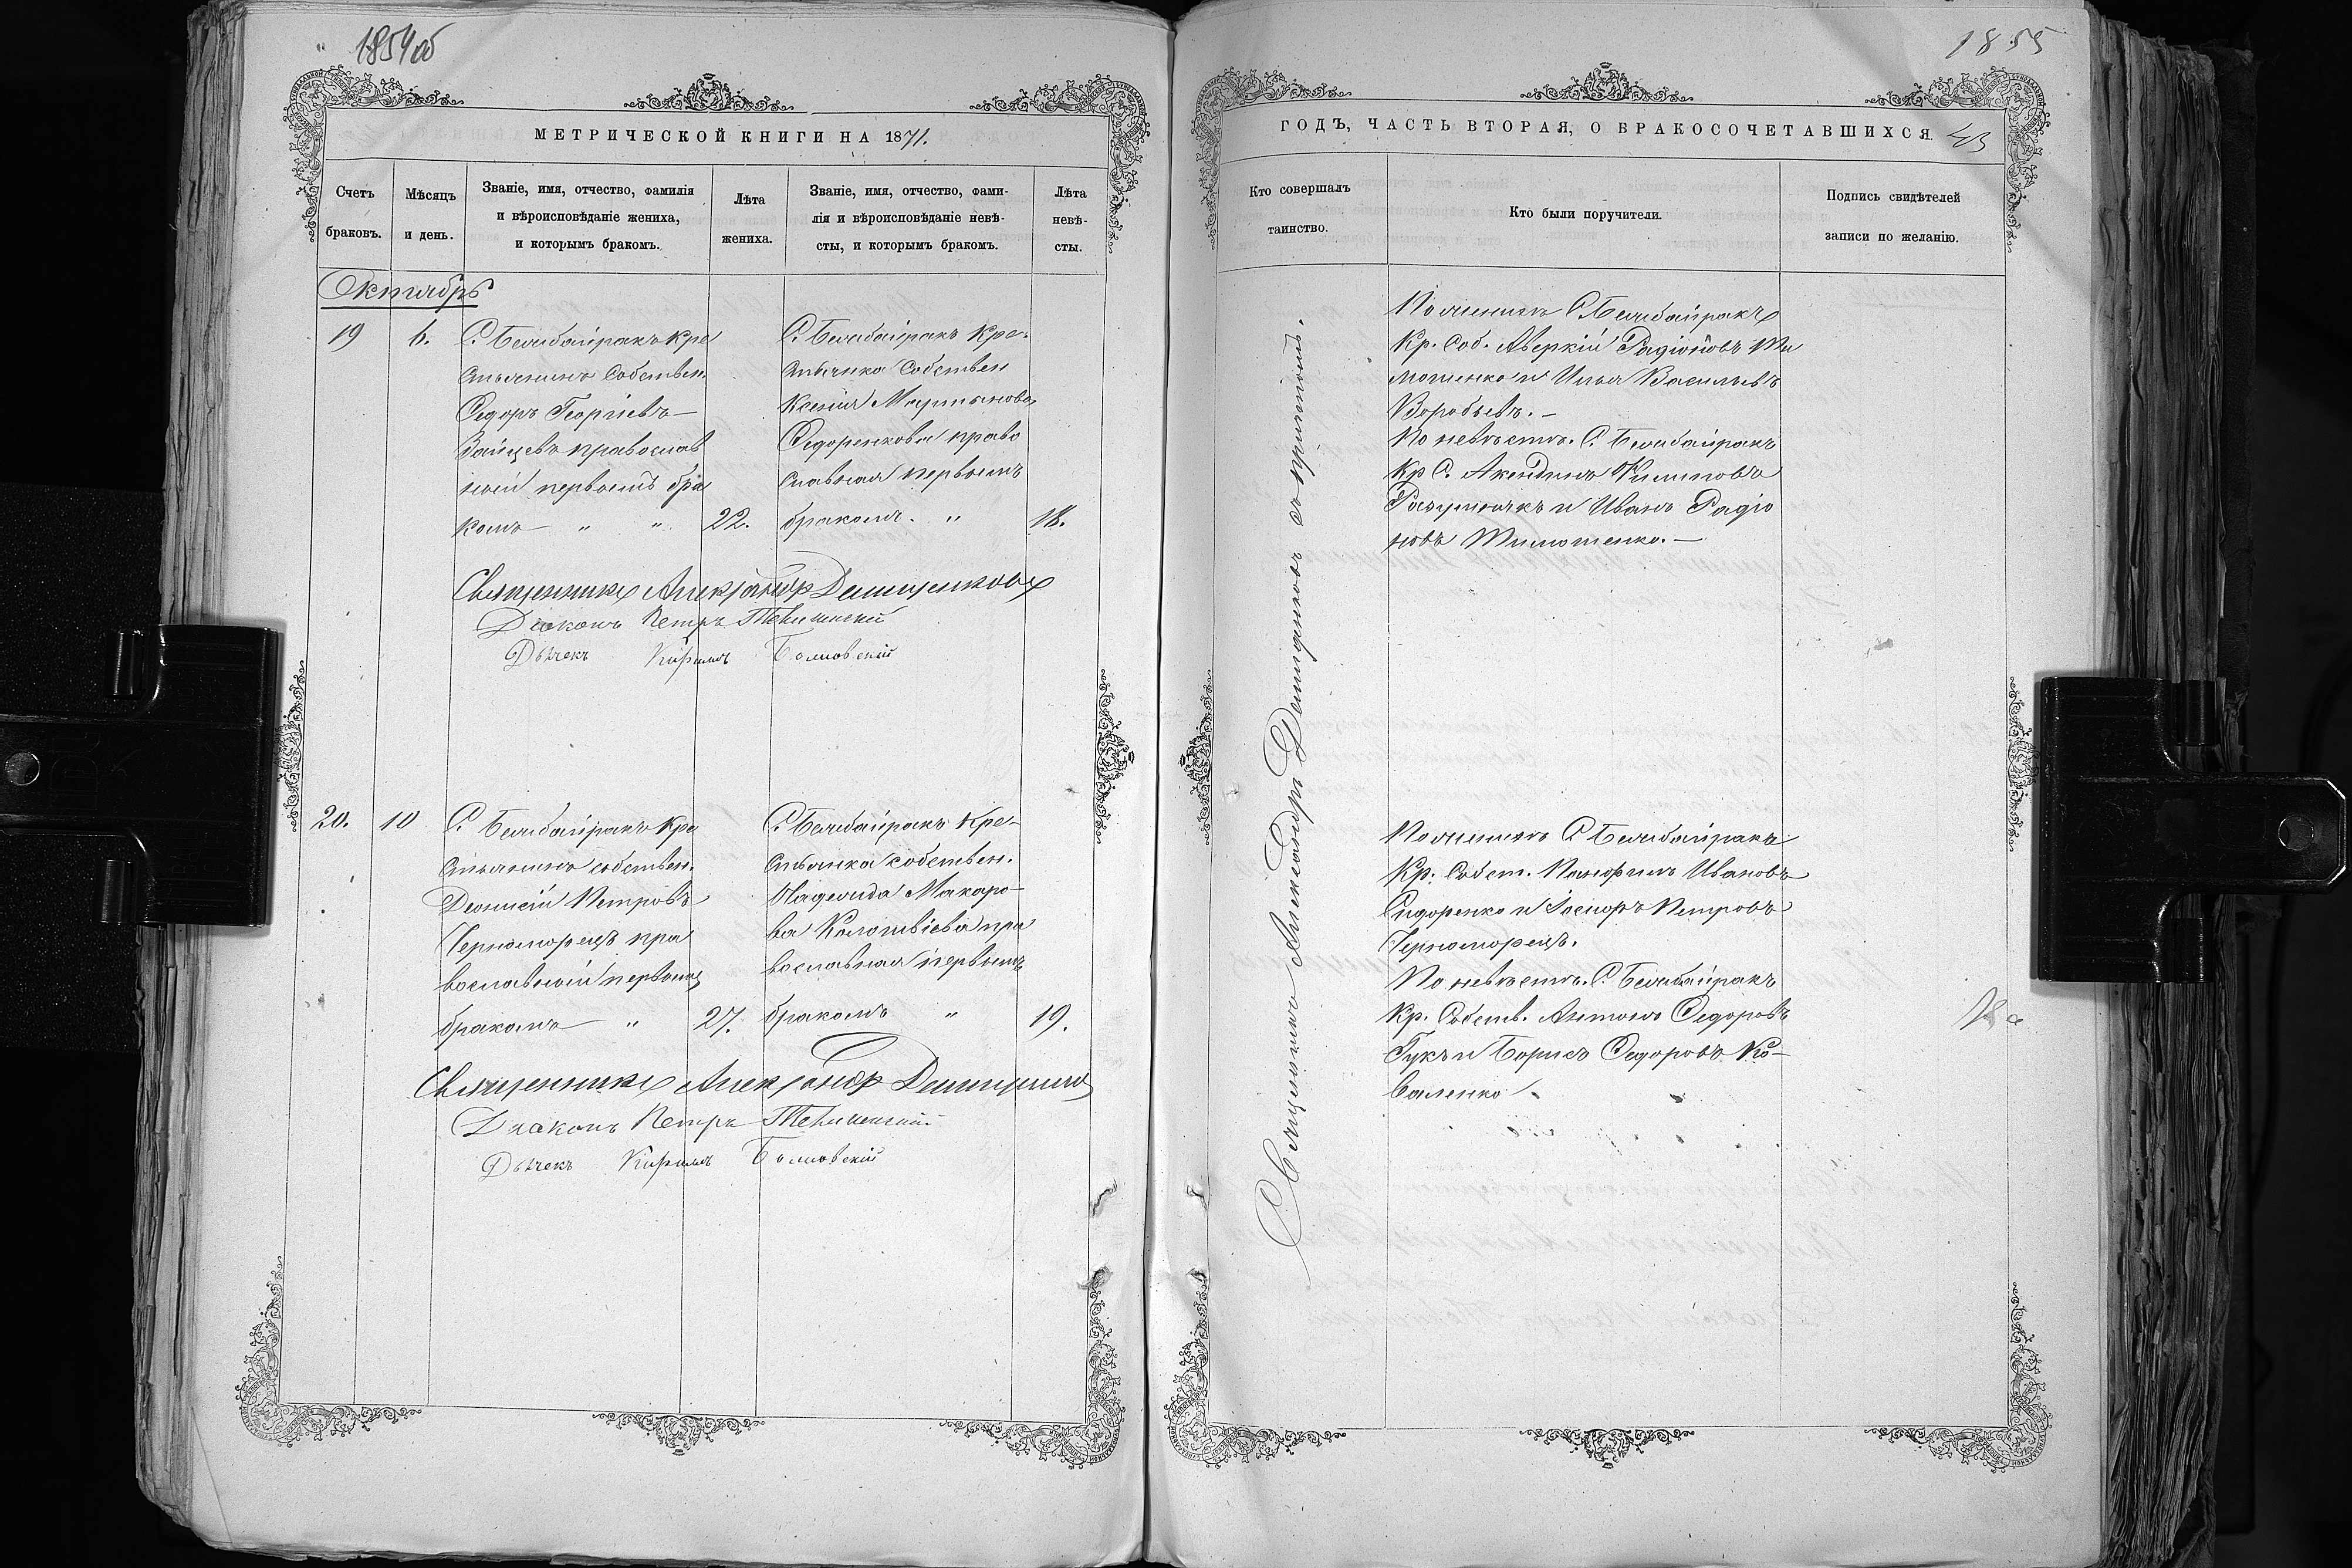 1854 об
МЕТРИЧЕСКОЙ КНИГИ НА 1871.
Счетъ браковъ.
Мѣсяцъ и день.
Званіе, имя, отчество, фамилія
и вѣроисповѣданіе жениха,
и которымъ бракомъ.
Лѣта жениха.
Званіе, имя, отчество, фами-
лія и вѣроисповѣданіе невѣ-
сты, и которымъ бракомъ.
Лѣта невѣ-
сты.
Октябрь
19
6.
С. Белибайракъ Кре
стьянинъ Собствен.
Ѳедоръ Георгіевъ
Зайцевъ православ
ный первымъ бра
комъ " "
22.
С. Белибайракъ Кре-
стьянка Собствен
Ксенія Мартынова
Ѳедоренкова право
славная первымъ
бракомъ. "
18.
Священникъ Александръ Демщенковъ
Діаконъ Петръ
Дьячекъ Кириллъ
20.
10
С. Белибайракъ Кре
стьянинъ собствен.
Деонисій Петровъ
Черноморецъ пра
вославный первымъ
бракомъ "
27.
С. Белибайракъ Кре-
стьянка собствен.
Макаро-
ва пра
вославная первымъ
бракомъ "
19.
Священникъ Александръ
Діаконъ Петръ
Дьячекъ Кириллъ
1855
ГОДЪ, ЧАСТЬ ВТОРАЯ, О БРАКОСОЧЕТАВШИХСЯ.
43
Кто совершалъ
таинство.
Кто были поручители.
Подпись свидѣтелей
записи по желанію.
Священникъ Александръ съ причтомъ.
По женихѣ С. Белибайракъ
Кр. Соб. Аверкій Радіоновъ Ти
мошенко и Илья Васильевъ
Воробьевъ.
По невѣстѣ. С. Белибайракъ
Кр С. Филиповъ
и Иванъ Радіо
новъ Тимошенко.
По женихѣ С. Белибайракъ
Кр. Собст. Панфилъ Ивановъ
Сидоренко и Петровъ
Черноморецъ.
По невѣстѣ. С. Белибайракъ
Кр. Собств. Антонъ Ѳедоровъ
Гукъ и Борисъ Ѳедоровъ Ко-
валенко